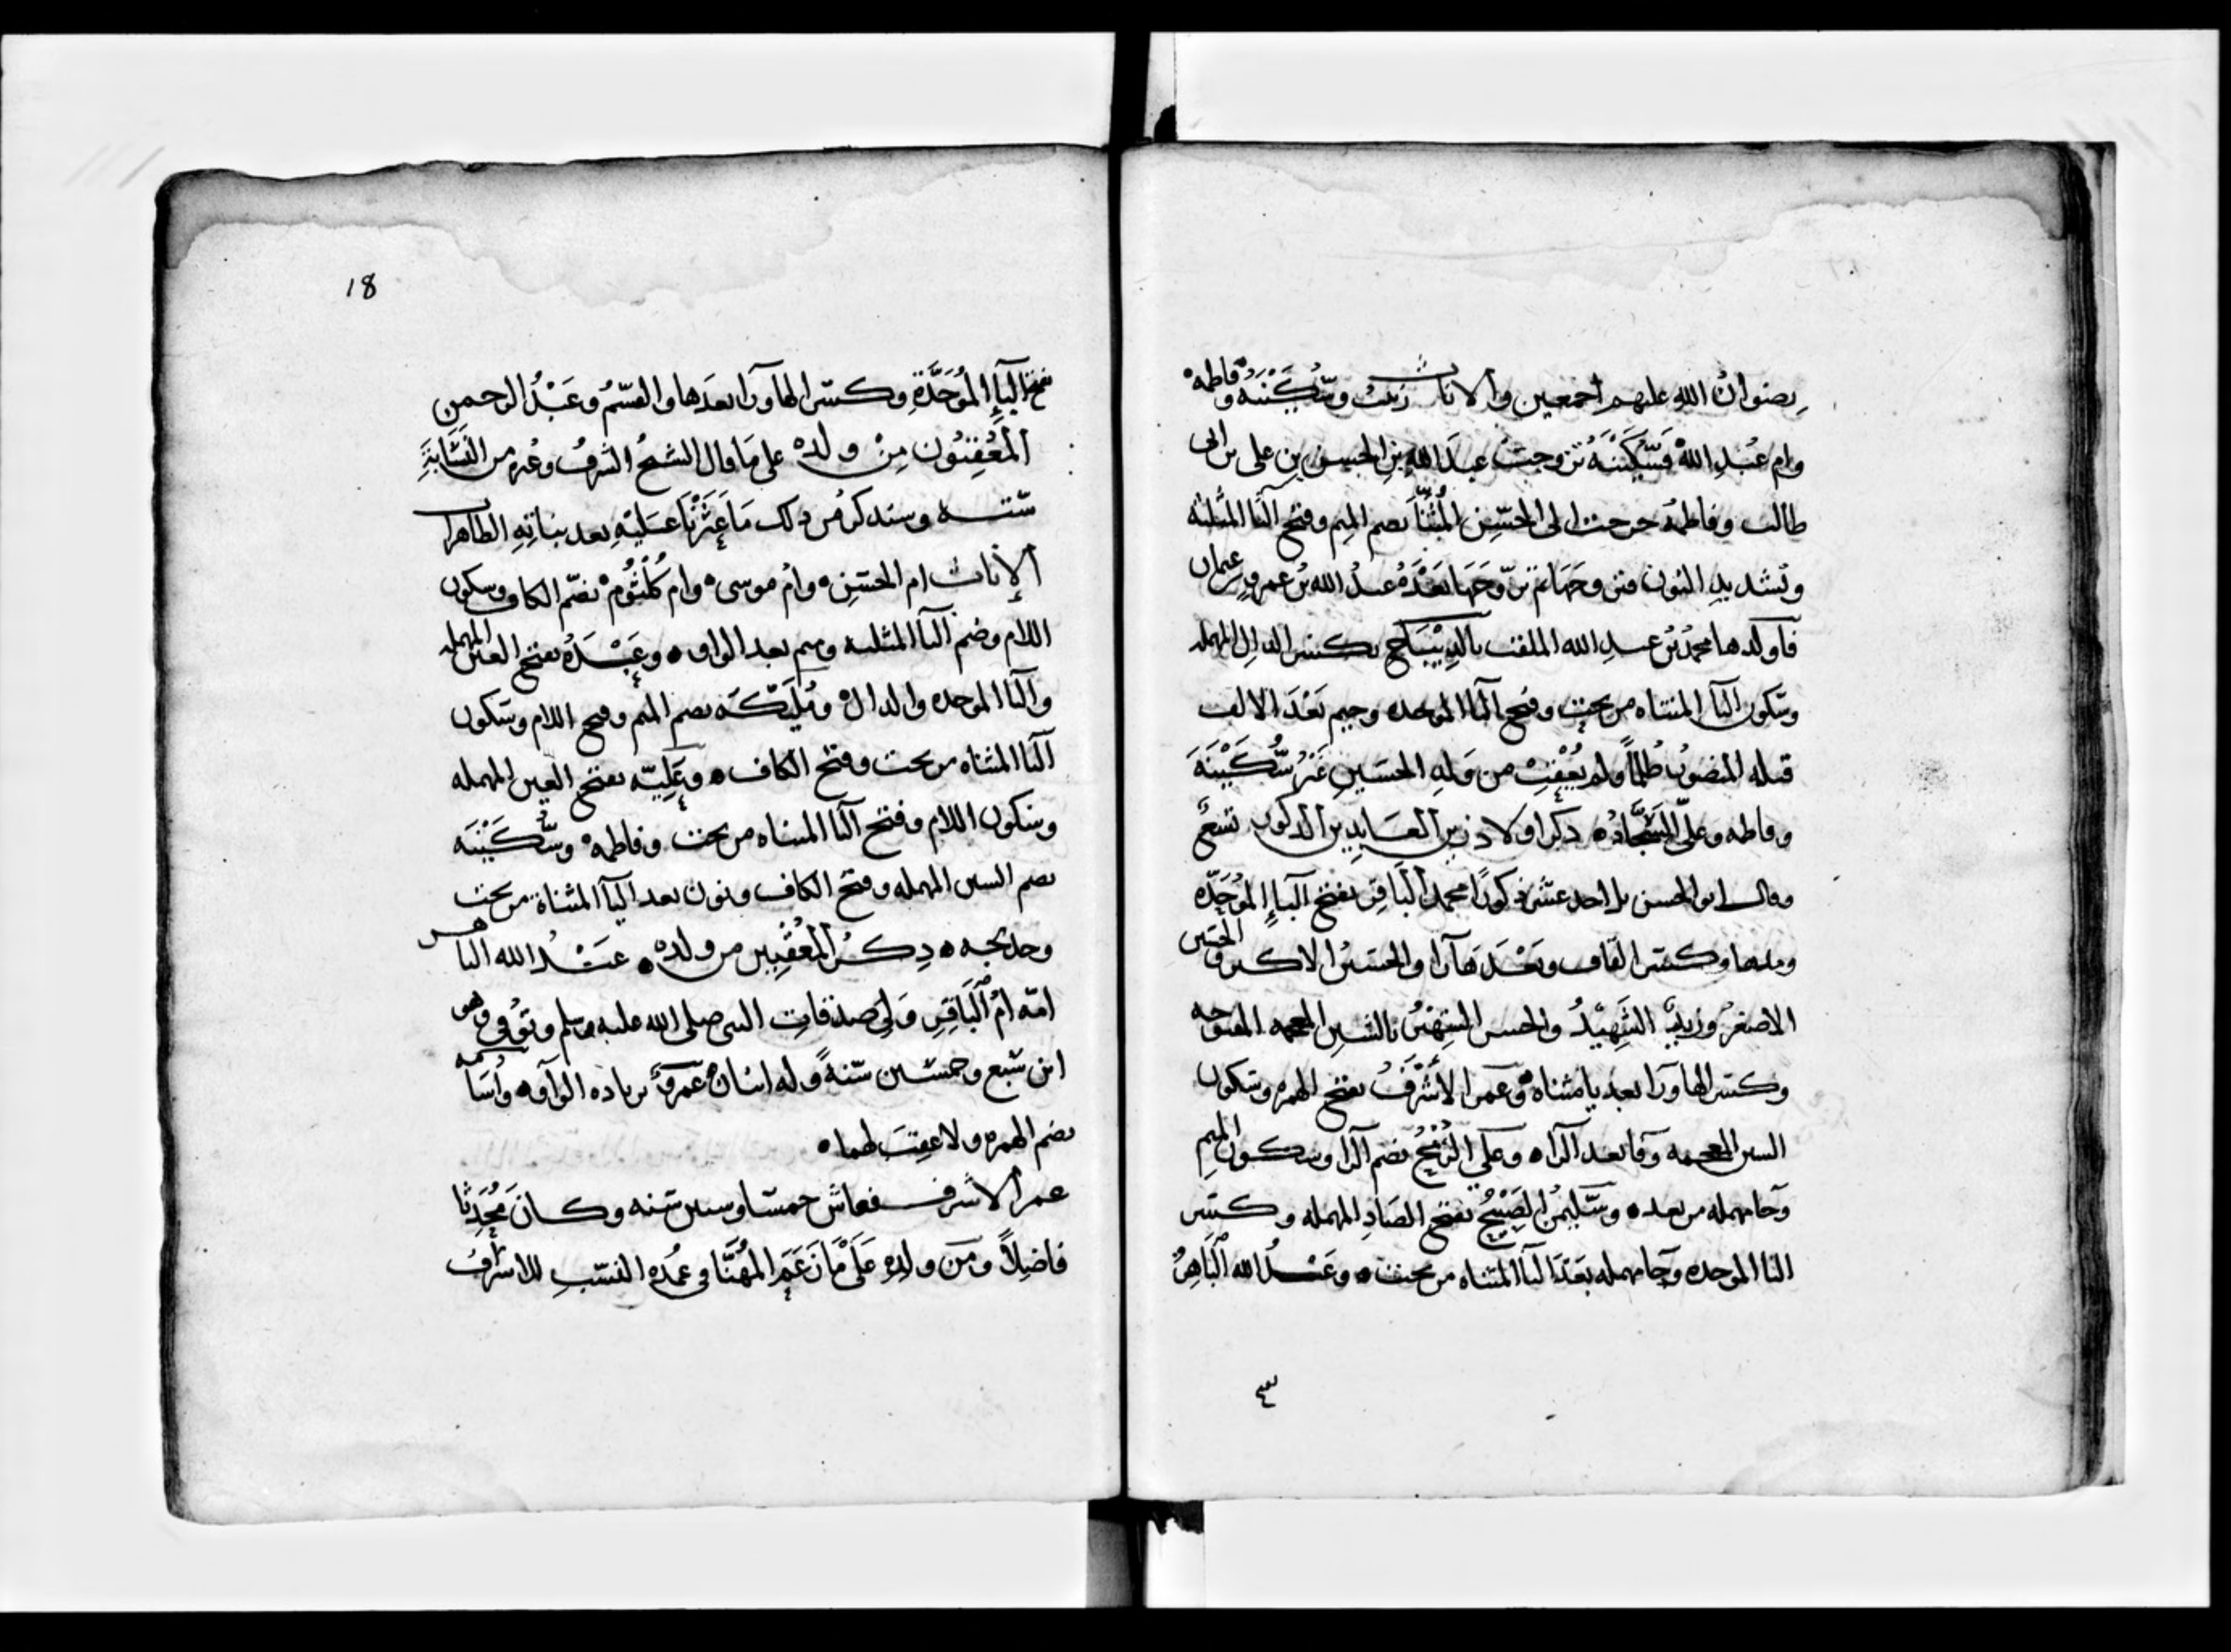 رضوان الله عليهم اجمعين والاناث زينب وسُكَيْنَة وفاطمه
وام عَبْدِ الله فسُكَيْنَة تزوجت عبدَ الله بن الحسن بن على بن ابى
طالب وفاطمة خرجت الى الحسَن المُثَنّا بضم الميم وفتح الثا المثلثة
وتشديد النون فتزوجَهَا ثم تزوّجَهَا بَعْدَهُ عبدُ الله بن عمرو بن عثمان
فاولدها محمدُ بن عبدِ الله الملقب بالدِيْبَاج بكسر الدال المهملة
وسكون اليآ المثناه من تحت وفتح البا الموحده وجيم بَعْدَ الالف
قتله المنصورُ ظلماً ولم يُعْقِبْ من وَلَدِ الحسَين غَيْرُ سُكَيْنَة
وفاطمه وعلىّ السَجَّادُ ه ذكر اولاد زين العَابِدِين الذكور تسعٌ
وقال ابو الحسن بل احد عشر ذكورًا محمد البَاقِر بفتح الباءِ المُوَحَّدَه
ومدها وكسر القاف وبَعْدَهَا رَا والحسَينُ الاكبر والحسَين
الاصغرُ وزيدٌ الشَهِيْدُ والحسن الشهيْرُ بالشين المعجمه المفتوحه
وكسر الها ورَا بعد يا مثناه وعمر الأَشْرَفُ بفتح الهمزه وسكون
الشين المعجمه وفا بعد الرَا ه وعَلى الرُمْحُ بضم الرا وسكون الميم
وحا مهمله من بعده ه وسُلَيمنُ الصَبِيْح بفتح الصَاد المهمله وكسر
البا الموحده وحا مهمله بَعْدَ اليا المثناه من تحت ه وعَبْدُ الله البَاهِرُ
18
بفتح البآءِ المُوَحَّدَةِ وكسر الها ورَا بعدَها والقسمُ وعَبْدُ الرحمن
المُعْقِبُون مِنْ ولده على مَا قال الشيخُ الشرفُ وغيره من النَسَّابَةِ
ستة وسنذكر من ذلك مَا عَثَرْنَا عَلَيْهِ بعد بناتِهِ الطاهرات
الإناث ام الحسَن ه وامُ موسى ه وام كُلْثُوم ه بضمّ الكاف وسكون
اللام وضم الثا المثلثة وميم بعد الواو ه وعَبْدَة بفتح العين المهملة
والبا الموحده والدال ه ومُلَيْكَه بضم الميم وفتح اللام وسكون
اليا المثناه من تحت وفتح الكاف ه وعَلِيّه بفتح العين المهمله
وسكون اللام وفتح اليا المثناه من تحت وفاطمه ه وسُكَيْنَه
بضم السين المهمله وفتح الكاف ونون بعد اليآ المثناة من تحت
وخديجه ه ذِكرُ المُعْقِبِين من ولده ه عَبْدُ الله الباهر
امّه امُ البَاقِر وَلىَ صدقاتِ النبى صلى الله عليه وسلم وتوُفى وهو
ابن سَبع وخمسين سَنةً وله ابنان عَمرو بزياده الواو ه واُسَامه
بضم الهمزه ولا عقِبَ لهما ه
عمر الاشرف فعاش خمسا وستين سَنه وكان مُحَدِثا
فاضِلاً ومَن ولدِه عَلَى مَا زَعَمَ المُهَنَّا فى عُمدَه النسَبِ للاشرفُ